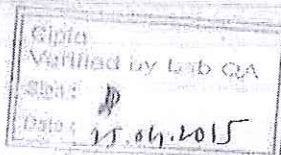 Cipla
Verified by Lab QA
Sign :
Date : 25.04.2015